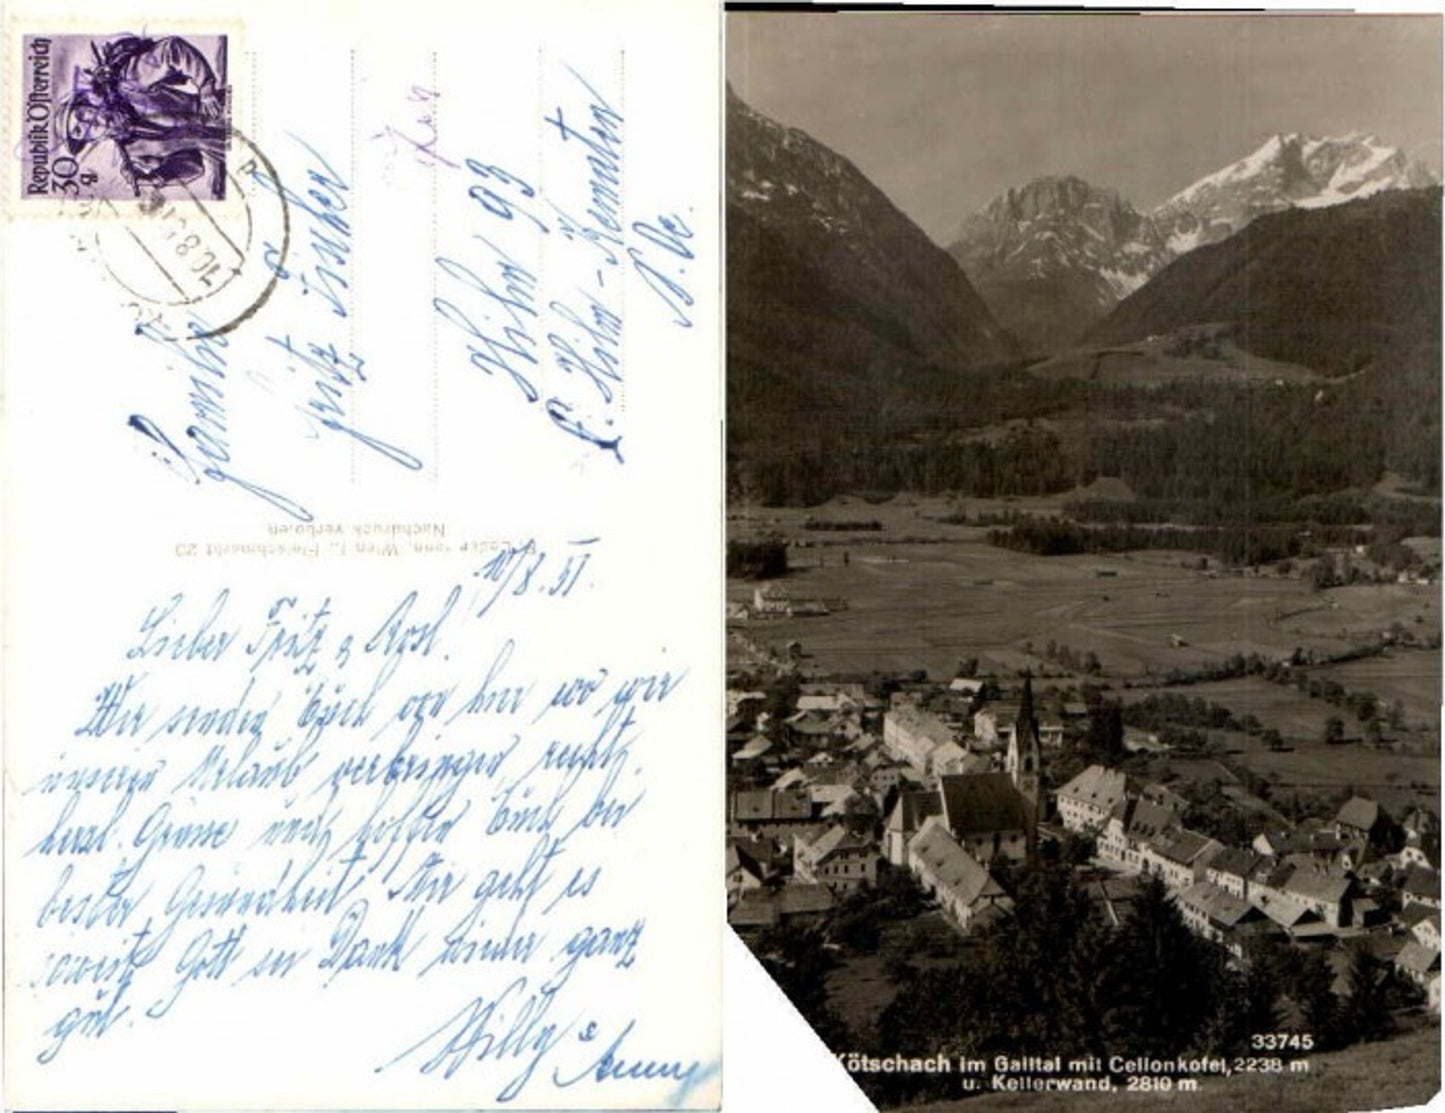 Republik Österreich
30 g
10.8.51
Familie
Fritz
93
Nachdruck verboten
Wien I., Fleischmarkt 20
10/8.51.
Lieber Fritz & Rosl.
Wir senden Euch von hier wo wir
unseren Urlaub verbringen recht
herzl. Grüsse und hoffen Euch bei
bester Gesundheit. Mir geht es
soweit Gott sei Dank wieder ganz
gut.
Willy & Anny
33745
Kötschach im Gailtal mit Cellonkofel, 2238 m
u. Kellerwand, 2810 m